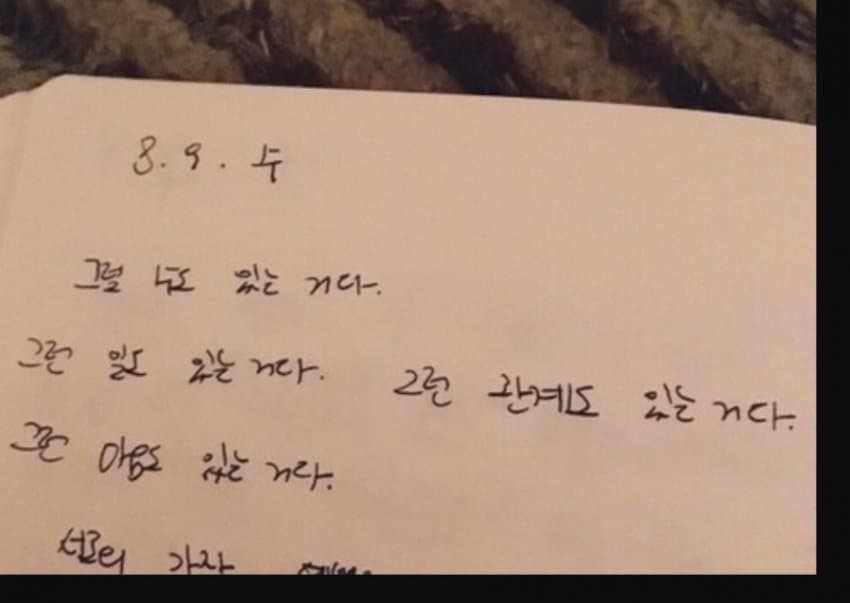 8. 9. 수
그럴 수도 있는 거다.
그런 일도 있는 거다.
그런 관계도 있는 거다.
그런 마음도 있는 거다.
서로의 가장